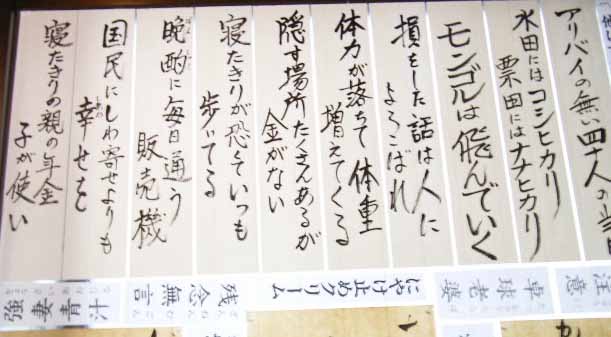 アリバイの無い四十人の
水田にはコシヒカリ
票田にはナナヒカリ
モンゴルは飛んでいく
損をした話は人に
よろこばれ
体力が落ちて体重
増えてくる
隠す場所たくさんあるが
金がない
寝たきりが恐くていつも
歩いてる
晩酌に毎日通う
販売機
国民にしわ寄せよりも
幸せを
寝たきりの親の年金
子が使い
強妻青汁
残念無言
ざんねんむごん
にやけ止めクリーム
卓球老婆
注意